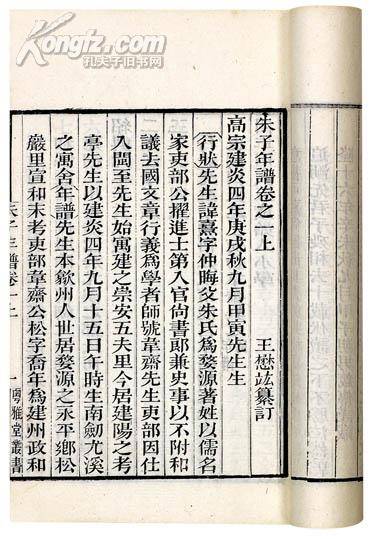 Kongfz.com
孔夫子旧书网
朱子年譜卷之一上
王懋竑纂訂
高宗建炎四年庚戌秋九月甲寅先生生
行狀先生諱熹字仲晦父朱氏爲婺源著姓以儒名
家吏部公擢進士第入官尚書郎兼史事以不附和
議去國文章行義爲學者師號韋齋先生吏部因仕
入閩至先生始寓建之崇安五夫里今居建陽之考
亭先生以建炎四年九月十五日午時生南劒尤溪
之寓舍年譜先生本歙州人世居婺源之永平鄉松
巖里宣和末考吏部韋齋公松字喬年爲建州政和
朱子年譜卷一上
一
粤雅堂叢書